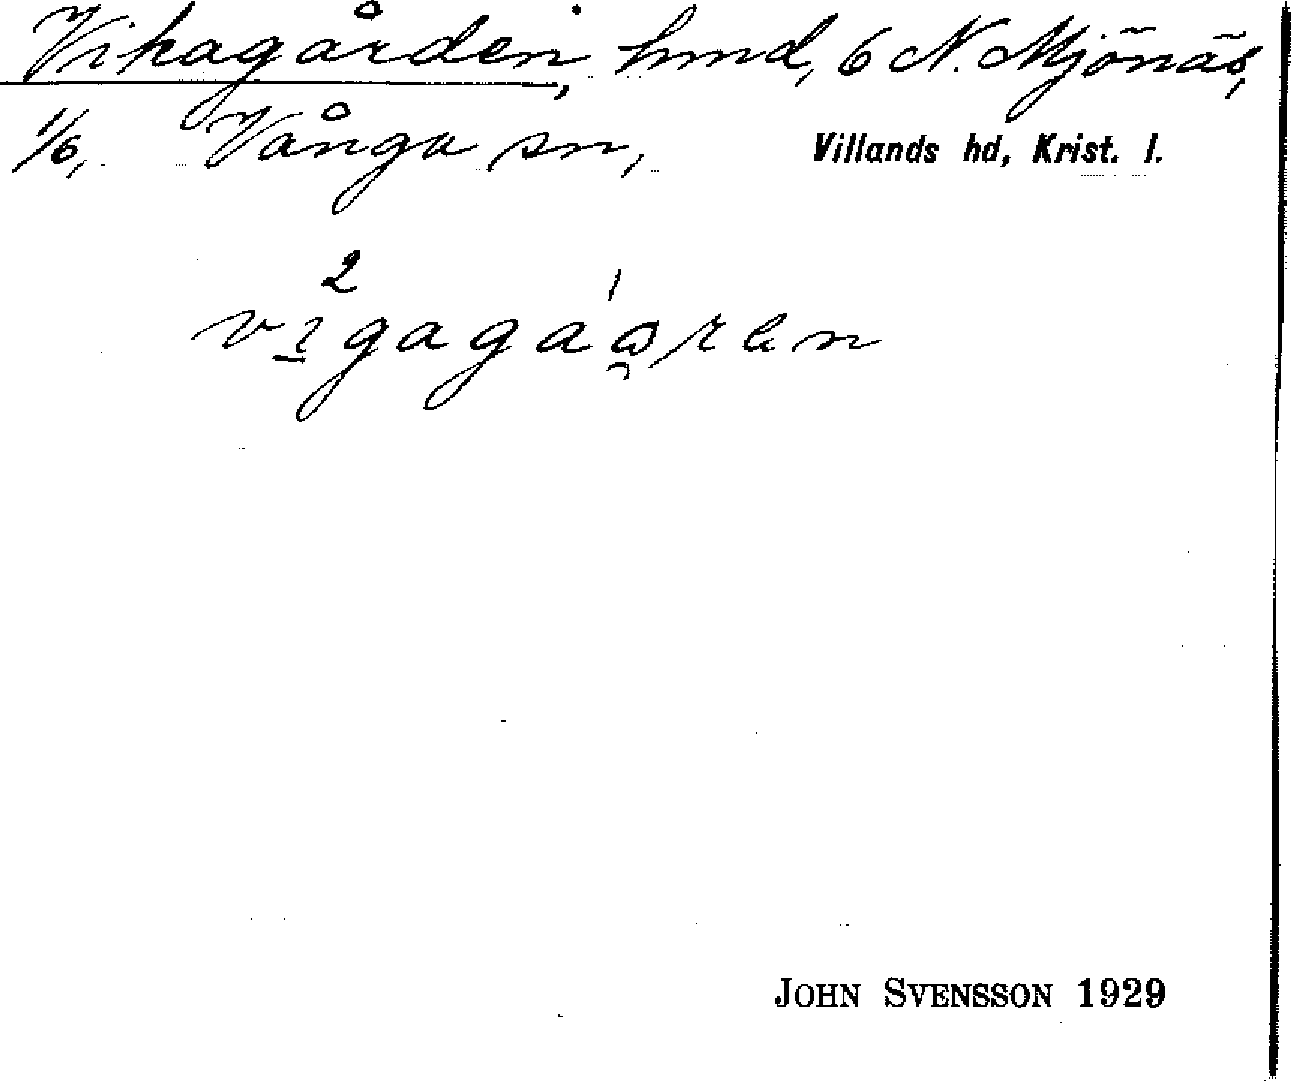 Vikagården, hmd, 6 N. Mjönäs,
1/6, Vånga sn, Villands hd, Krist. l.
2
vigagaåren
JOHN SVENSSON 1929